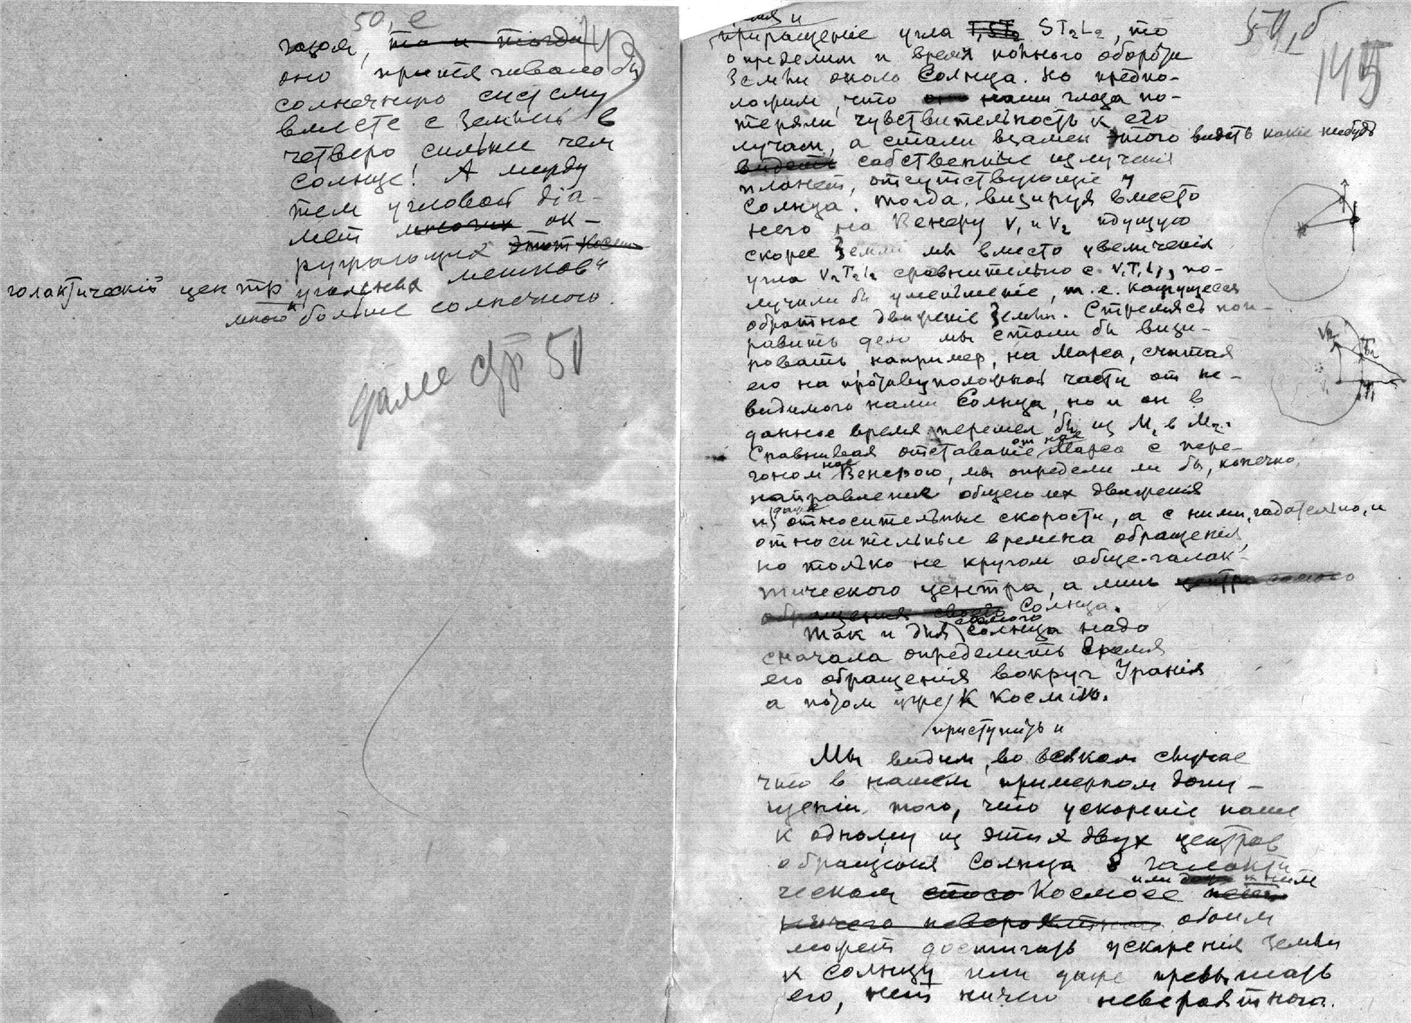 50, е
143
гаюя, то и тогда
оно притягивало бы
солнечную систему
вместе с Землей в
четверо сильнее чем
солнце! А между
тем угловой діа-
мет многих ок-
ружающих этот Косм
галактическій центр угольных мешков"
много больше солнечного.
далее стр 51
50, б
145
приращеніе угла T₁ST₂ ST₂L₂, то
определим и время полного оборота
Земли около Солнца. Но предпо-
ложим, что они наши глаза по-
теряли чувствительность к его
лучам, а стали взамен этого видеть какие нибудь
видеть собственные излученія
планет, отсутствующие у
Солнца. Тогда, визируя вместо
него на Венеру V₁ и V₂ идущую
скорее Земли мы вместо увеличенія
угла V₂T₂L₂ сравнительно с V₁T₁L₁, по-
лучили бы уменьшение, т.е. кажущееся
обратное движеніе Земли. Стремясь поп-
равить дело мы стали бы визи-
ровать, например, на Марса, считая
его на противуположной части от не-
видимого нами Солнца, но и он в
данное время перешел бы из M₁ в M₂.
от нас
Сравнивая отставаніе Марса с пере-
гоном нас Венерою, мы определили бы, конечно,
направление общего их движенія
и даже относительные скорости, а с ними, гадательно, и
относительные времена обращенія,
но только не кругом обще-галак-
тического центра, а лишь центра самого
обращения своего Солнца.
самого
Так и для Солнца надо
сначала определить время
его обращенія вокруг Уранія
а потом уже К Космію.
приступить и
Мы видим, во всяком случае
что в нашем примерном допу-
щеніи того, что ускореніе наше
к одному из этих двух центров
обращенія Солнца в галакти
или к ним
ческом Космосе
ничего невероятного обоим
может достигать ускоренія Земли
к Солнцу или даже превышать
его, нет ничего невероятного.